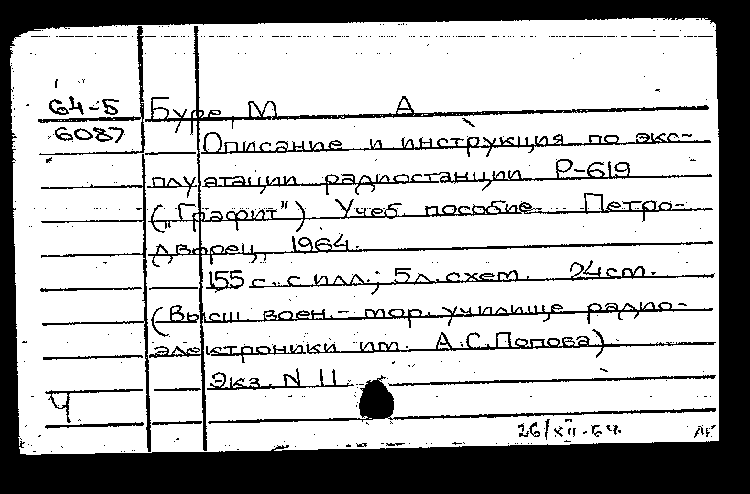 64-5 Буре, М А
6087 Описание и инструкция по экс-
плуатации радиостанции Р-619
(„Графит") Учеб. пособие. Петро-
дворец, 1964.
155 с. с илл.; 5 л. схем. 24 см.
(Высш воен.-мор. училище радио-
электроники им. А.С.Попова)
Экз. N 11
Ч
26/XII-64